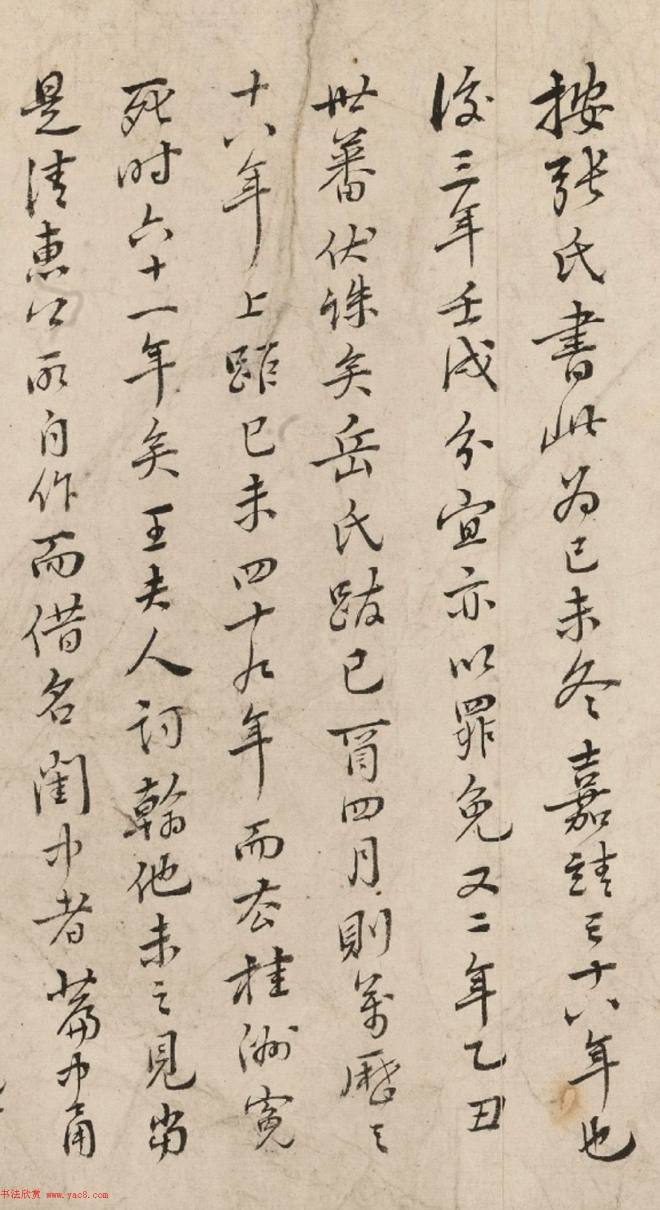 按張氏書此为己未冬嘉靖三十八年也
後三年壬戌分宜亦以罪免又二年乙丑
世蕃伏誅矣岳氏跋己酉四月則萬曆三
十八年上距己未四十九年而去桂洲寃
死时六十一年矣王夫人詞翰他未之見当
是清惠公所自作而借名閨中者篇中用
书法欣赏 www.yac8.com